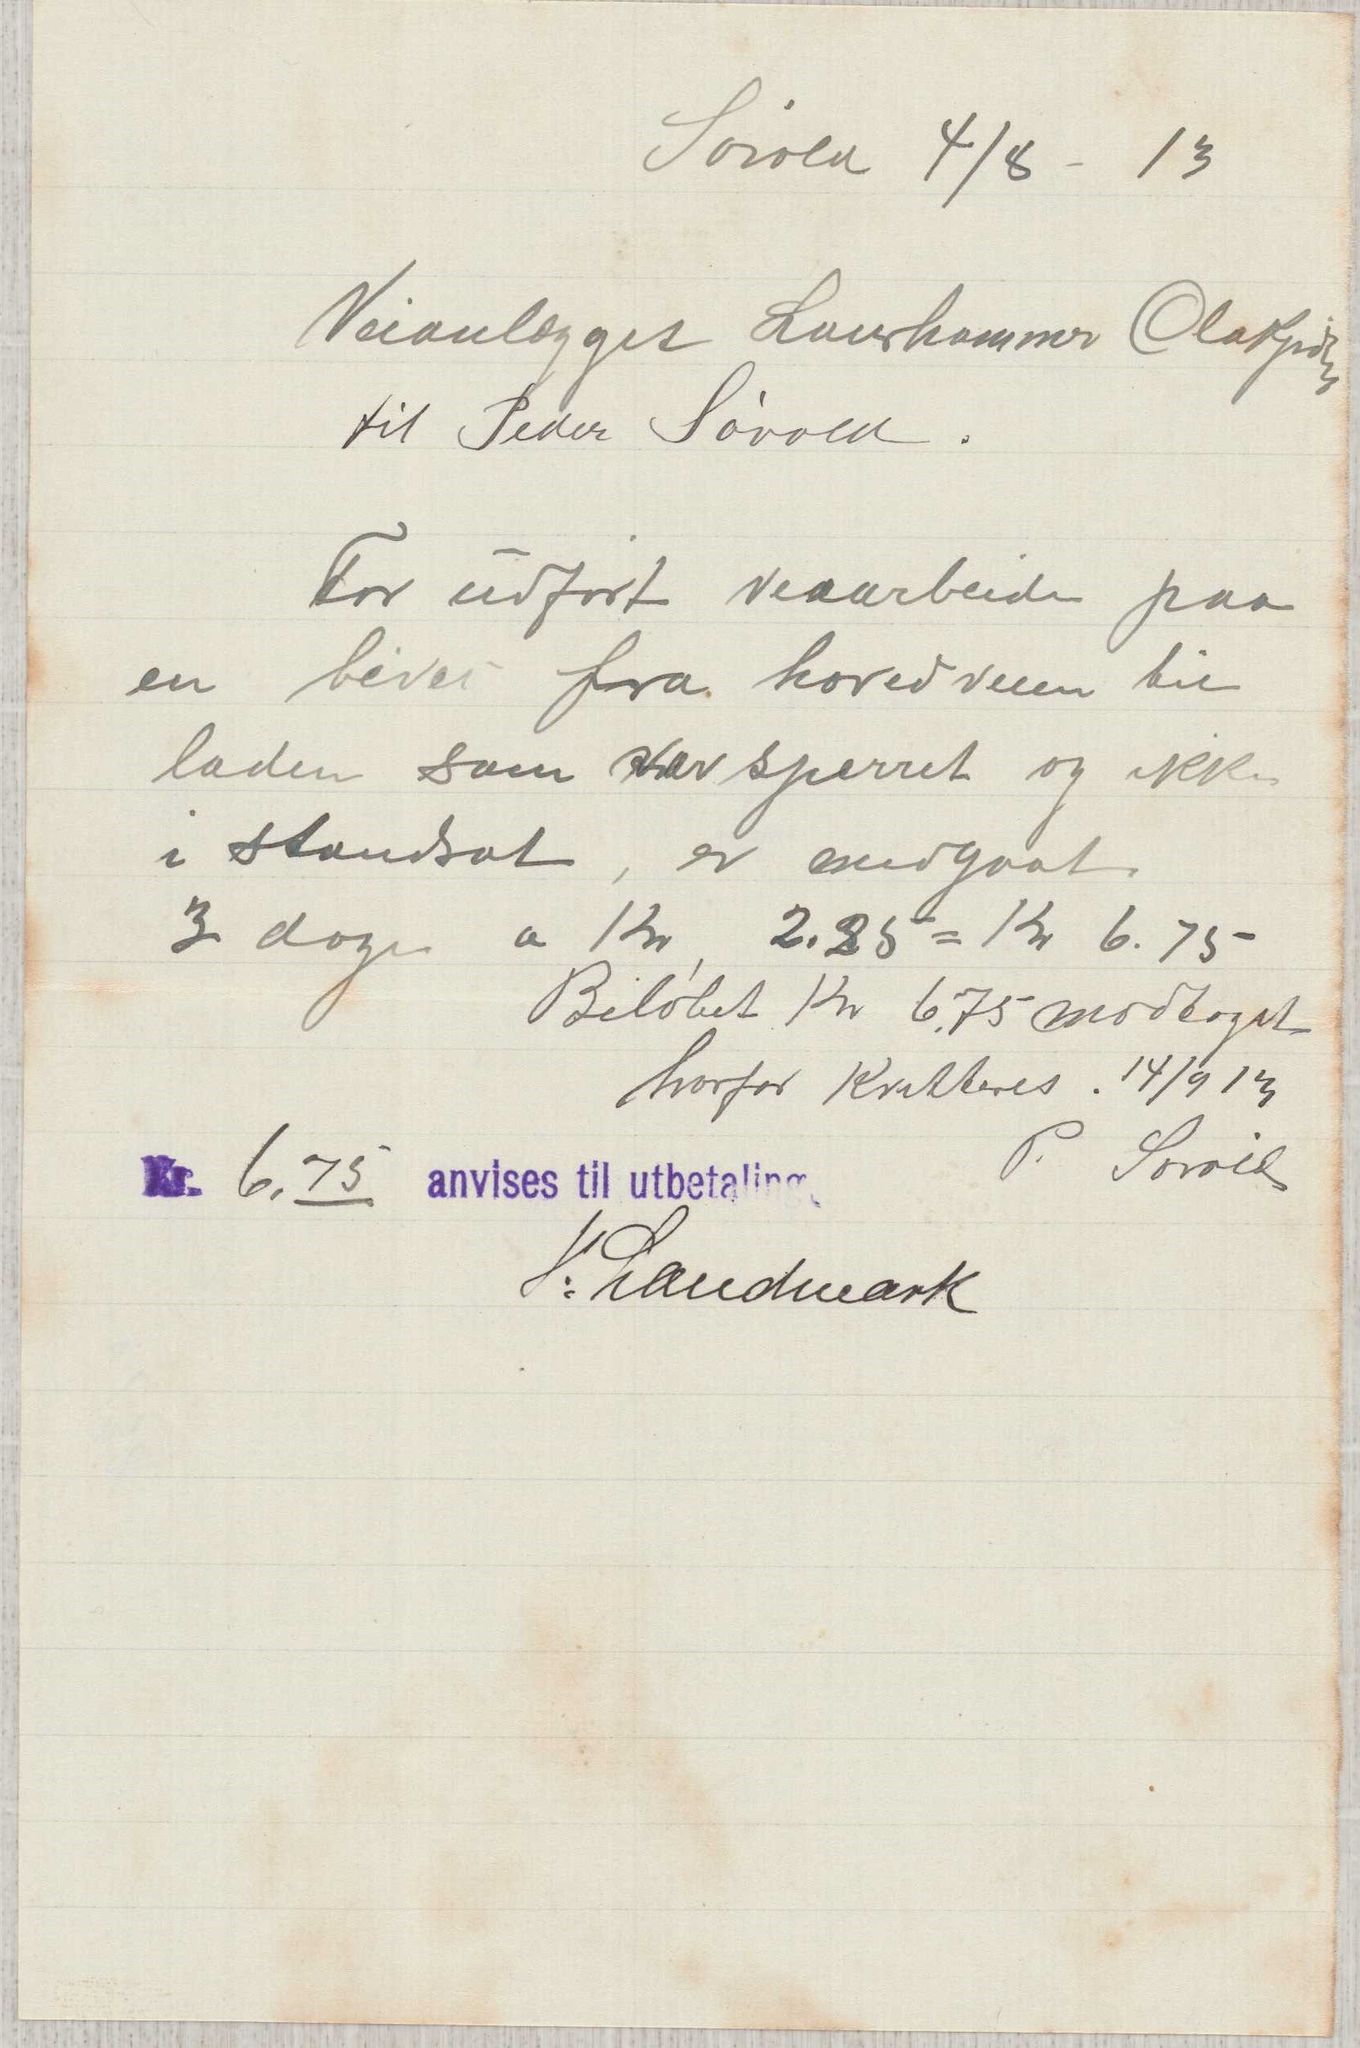 Sørold 4/8 - 13
Veianlægget Laurhammer Olakjøln
til Peder Søvold.
For üdført veaarbeide paa
en bivei fra hovedveien til
laden som var sperret og ikke
i standsat, er medgaat
3 dage a Kr, 2.25 = Kr 6.75
Beløbet Kr 6,75 modtaget
hvorfor Kvitteres. 14/9 13
P. Sørold
Kr. 6.75 anvises til utbetaling.
Landmark